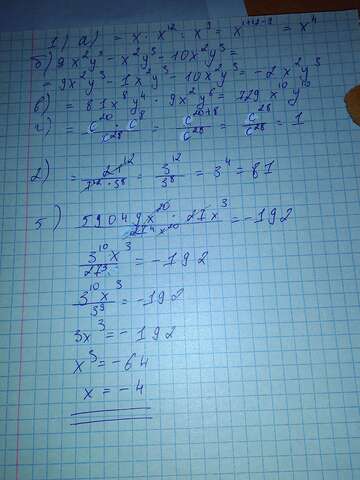 1) а) = x · x¹² : x⁹ = x¹⁺¹²⁻⁹ = x⁴
б) 9x²y³ - x²y³ - 10x²y³ =
= 9x²y³ - 1x²y³ - 10x²y³ = -2x²y³
в) = 81x⁸y⁴ · 9x²y⁶ = 729x¹⁰y¹⁰
г) = c²⁰ · c⁸ / c²⁸ = c²⁰⁺⁸ / c²⁸ = c²⁸ / c²⁸ = 1
2) = 3¹² / 3⁸ = 3⁴ = 81
5) 59049x²⁰ · 27x³ / 27⁴x²⁰ = -192
3¹⁰x³ / 27³ = -192
3¹⁰x³ / 3⁹ = -192
3x³ = -192
x³ = -64
x = -4